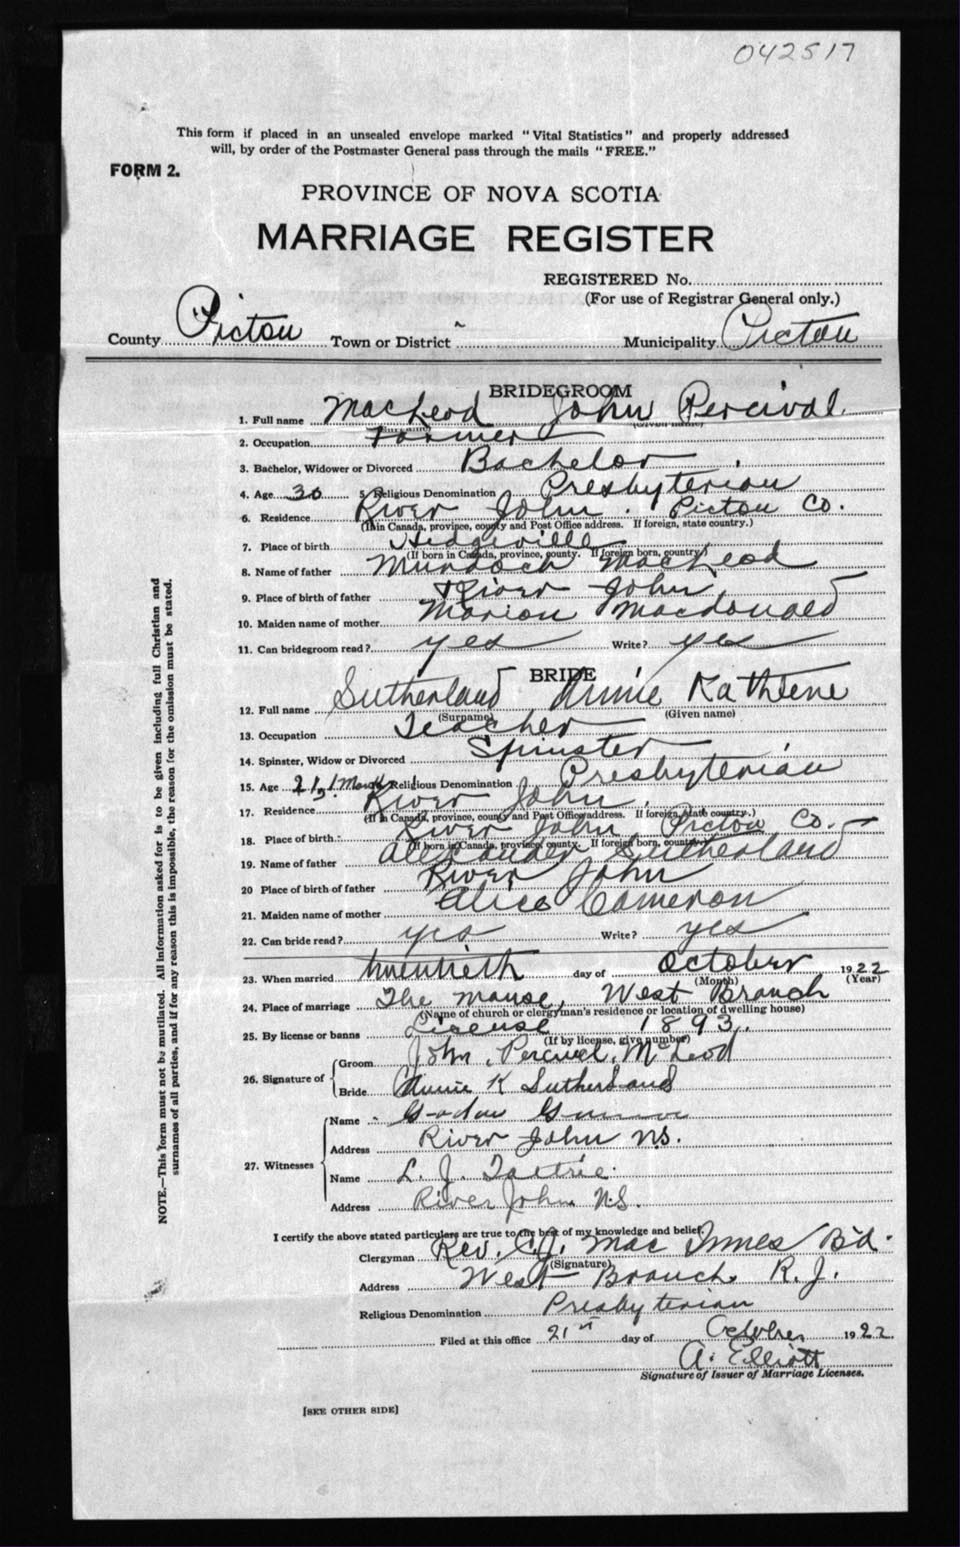 042517
This form if placed in an unsealed envelope marked "Vital Statistics" and properly addressed
will, by order of the Postmaster General pass through the mails "FREE."
FORM 2.
PROVINCE OF NOVA SCOTIA
MARRIAGE REGISTER
REGISTERED No.
(For use of Registrar General only.)
County Pictou Town or District ~ Municipality Pictou
BRIDEGROOM
1. Full name MacLeod John Percival
(Surname) (Given name)
2. Occupation Farmer
3. Bachelor, Widower or Divorced Bachelor
4. Age 30 5. Religious Denomination Presbyterian
6. Residence River John. Pictou Co.
(If in Canada, province, county and Post Office address. If foreign, state country.)
7. Place of birth Hedgeville
(If born in Canada, province, county. If foreign born, country)
8. Name of father Murdoch MacLeod
9. Place of birth of father River John
10. Maiden name of mother Marion Macdonald
11. Can bridegroom read? yes Write? yes
BRIDE
12. Full name Sutherland Annie Kathlene
(Surname) (Given name)
13. Occupation Teacher
14. Spinster, Widow or Divorced Spinster
15. Age 21, 1 Month Religious Denomination Presbyterian
17. Residence River John,
(If in Canada, province, county and Post Office address. If foreign, state country.)
18. Place of birth River John Pictou Co.
(If born in Canada, province, county. If foreign born, country)
19. Name of father Alexander Sutherland
20 Place of birth of father River John
21. Maiden name of mother Alice Cameron
22. Can bride read? yes Write? yes
23. When married twentieth day of October 1922
(Month) (Year)
24. Place of marriage The manse, West Branch
(Name of church or clergyman's residence or location of dwelling house)
25. By license or banns License 1893
(If by license, give number)
26. Signature of Groom John Percival McLeod
Bride Annie K Sutherland
27. Witnesses Name
Address River John N.S.
Name L. J. Tattrie
Address River John N.S.
I certify the above stated particulars are true to the best of my knowledge and belief.
Clergyman Rev. Mac Innes B.D.
(Signature)
Address West Branch R. J.
Religious Denomination Presbyterian
Filed at this office 21st day of October 1922
A. Elliott
Signature of Issuer of Marriage Licenses.
[SEE OTHER SIDE]
NOTE.—This form must not be mutilated. All information asked for is to be given including full Christian and
surnames of all parties, and if for any reason this is impossible, the reason for the omission must be stated.